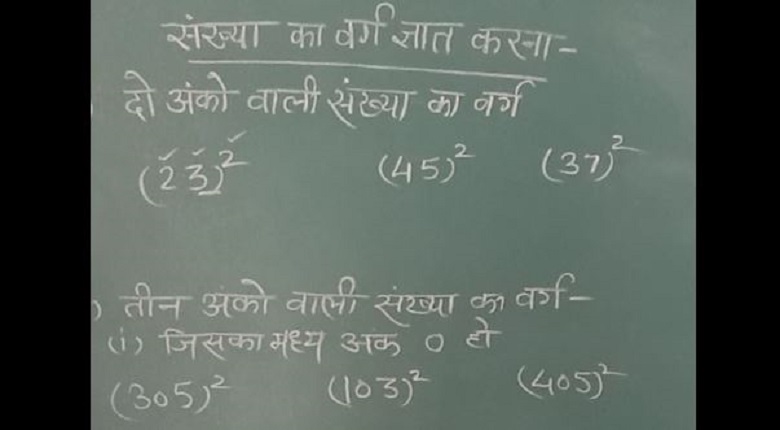 संख्या का वर्ग ज्ञात करना -
दो अंको वाली संख्या का वर्ग
(23)² (45)² (37)²
) तीन अंको वाली संख्या का वर्ग -
(i) जिसका मध्य अंक 0 हो
(305)² (103)² (405)²